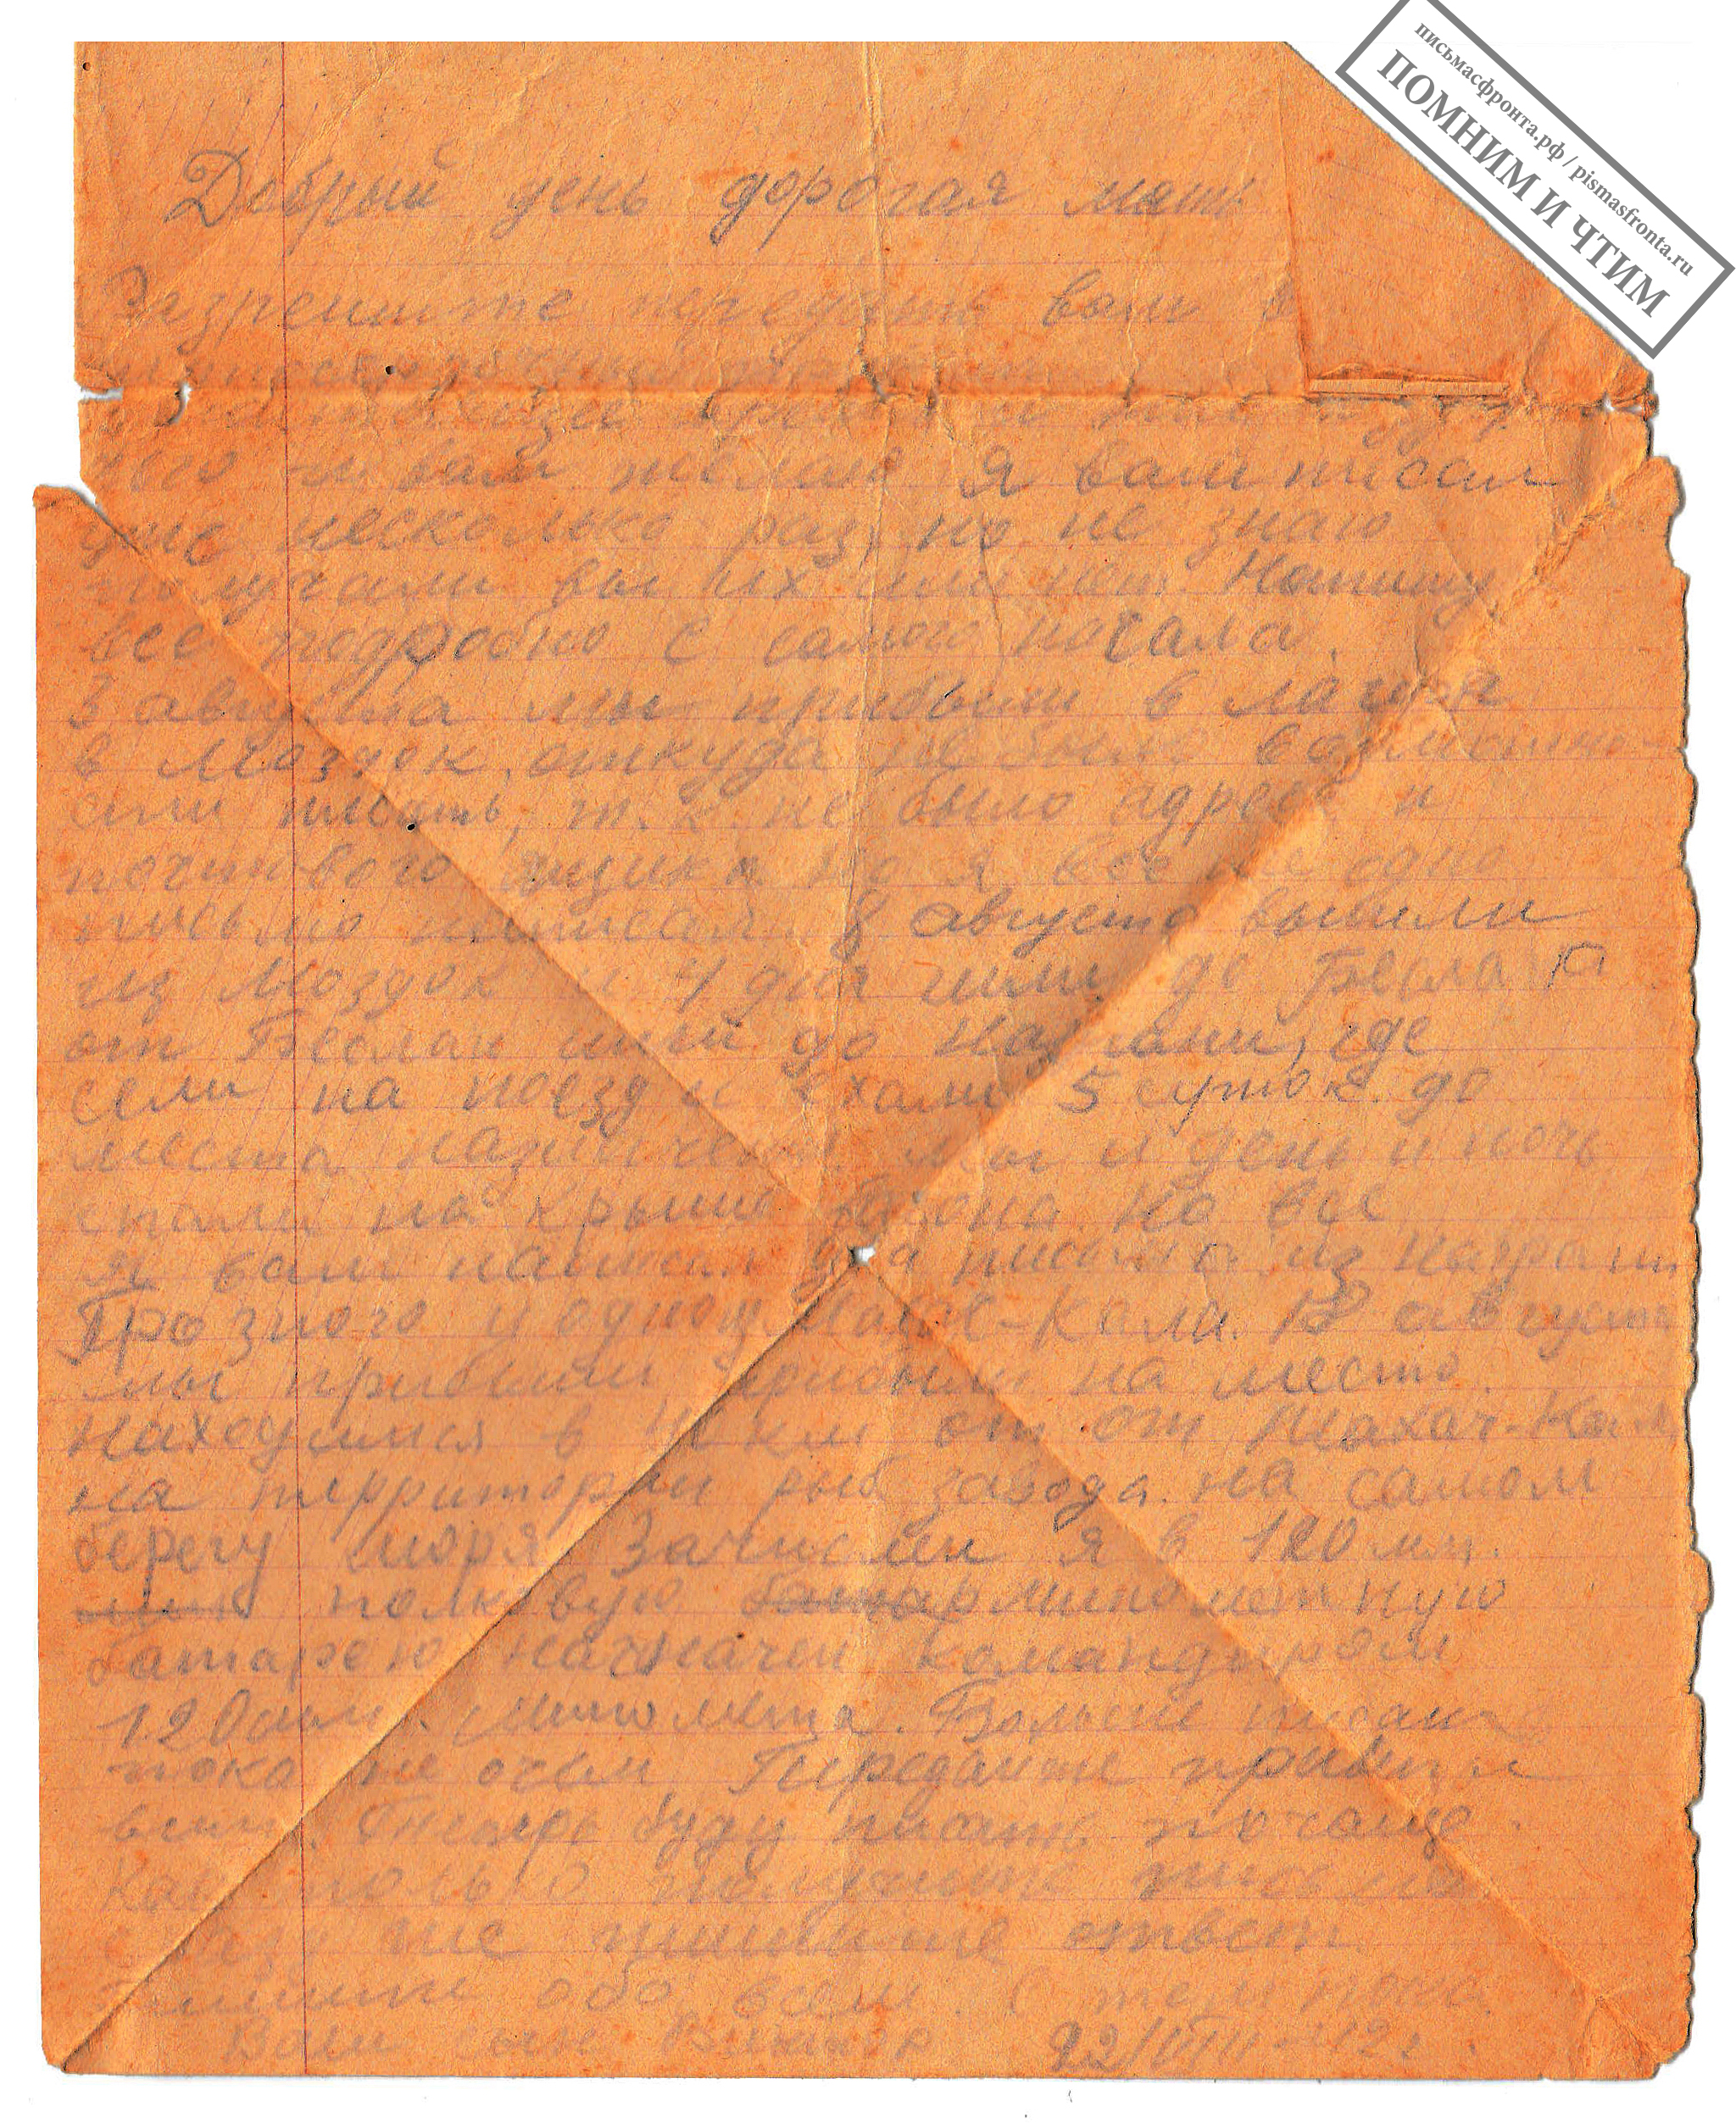 письмасфронта.рф / pismasfronta.ru
ПОМНИМ И ЧТИМ
Добрый день дорогая мать
Разрешите передать вам
вам желаю я вам писал
уже несколько раз, но не знаю
получали вы их или нет. Напишу
все подробно с самого начала.
3 августа мы прибыли в лагеря
в Моздок, откуда не было
писать, т.к. не было адреса и
почтового ящика но я все же одно
письмо написал. 8 августа вышли
из Моздок и 4 дня шли до Беслан
от Беслан шли до Назрани, где
сели на поезд и ехали 5 суток до
места мы и день и ночь
спали на крыше вагона. Но все
я вам написал два письма из Назрани
Грозного и одно из Махач-Кала. августа
мы прибыли прибыли на место.
Находимся в км от от Махач-Кала
на территории рыб завода. на самом
берегу моря Зачислен я в 120 мм.
полковую батар минометную
батарею назначен командиром
120мм. Миномета. Больше писать
пока не очем Передайте привет
всем. Теперь буду писать почаще.
Как только получите письмо
сразу же пишите ответ.
Пишите обо всем. С тем пока.
Ваш сын Виктор 22/VIII-42г.